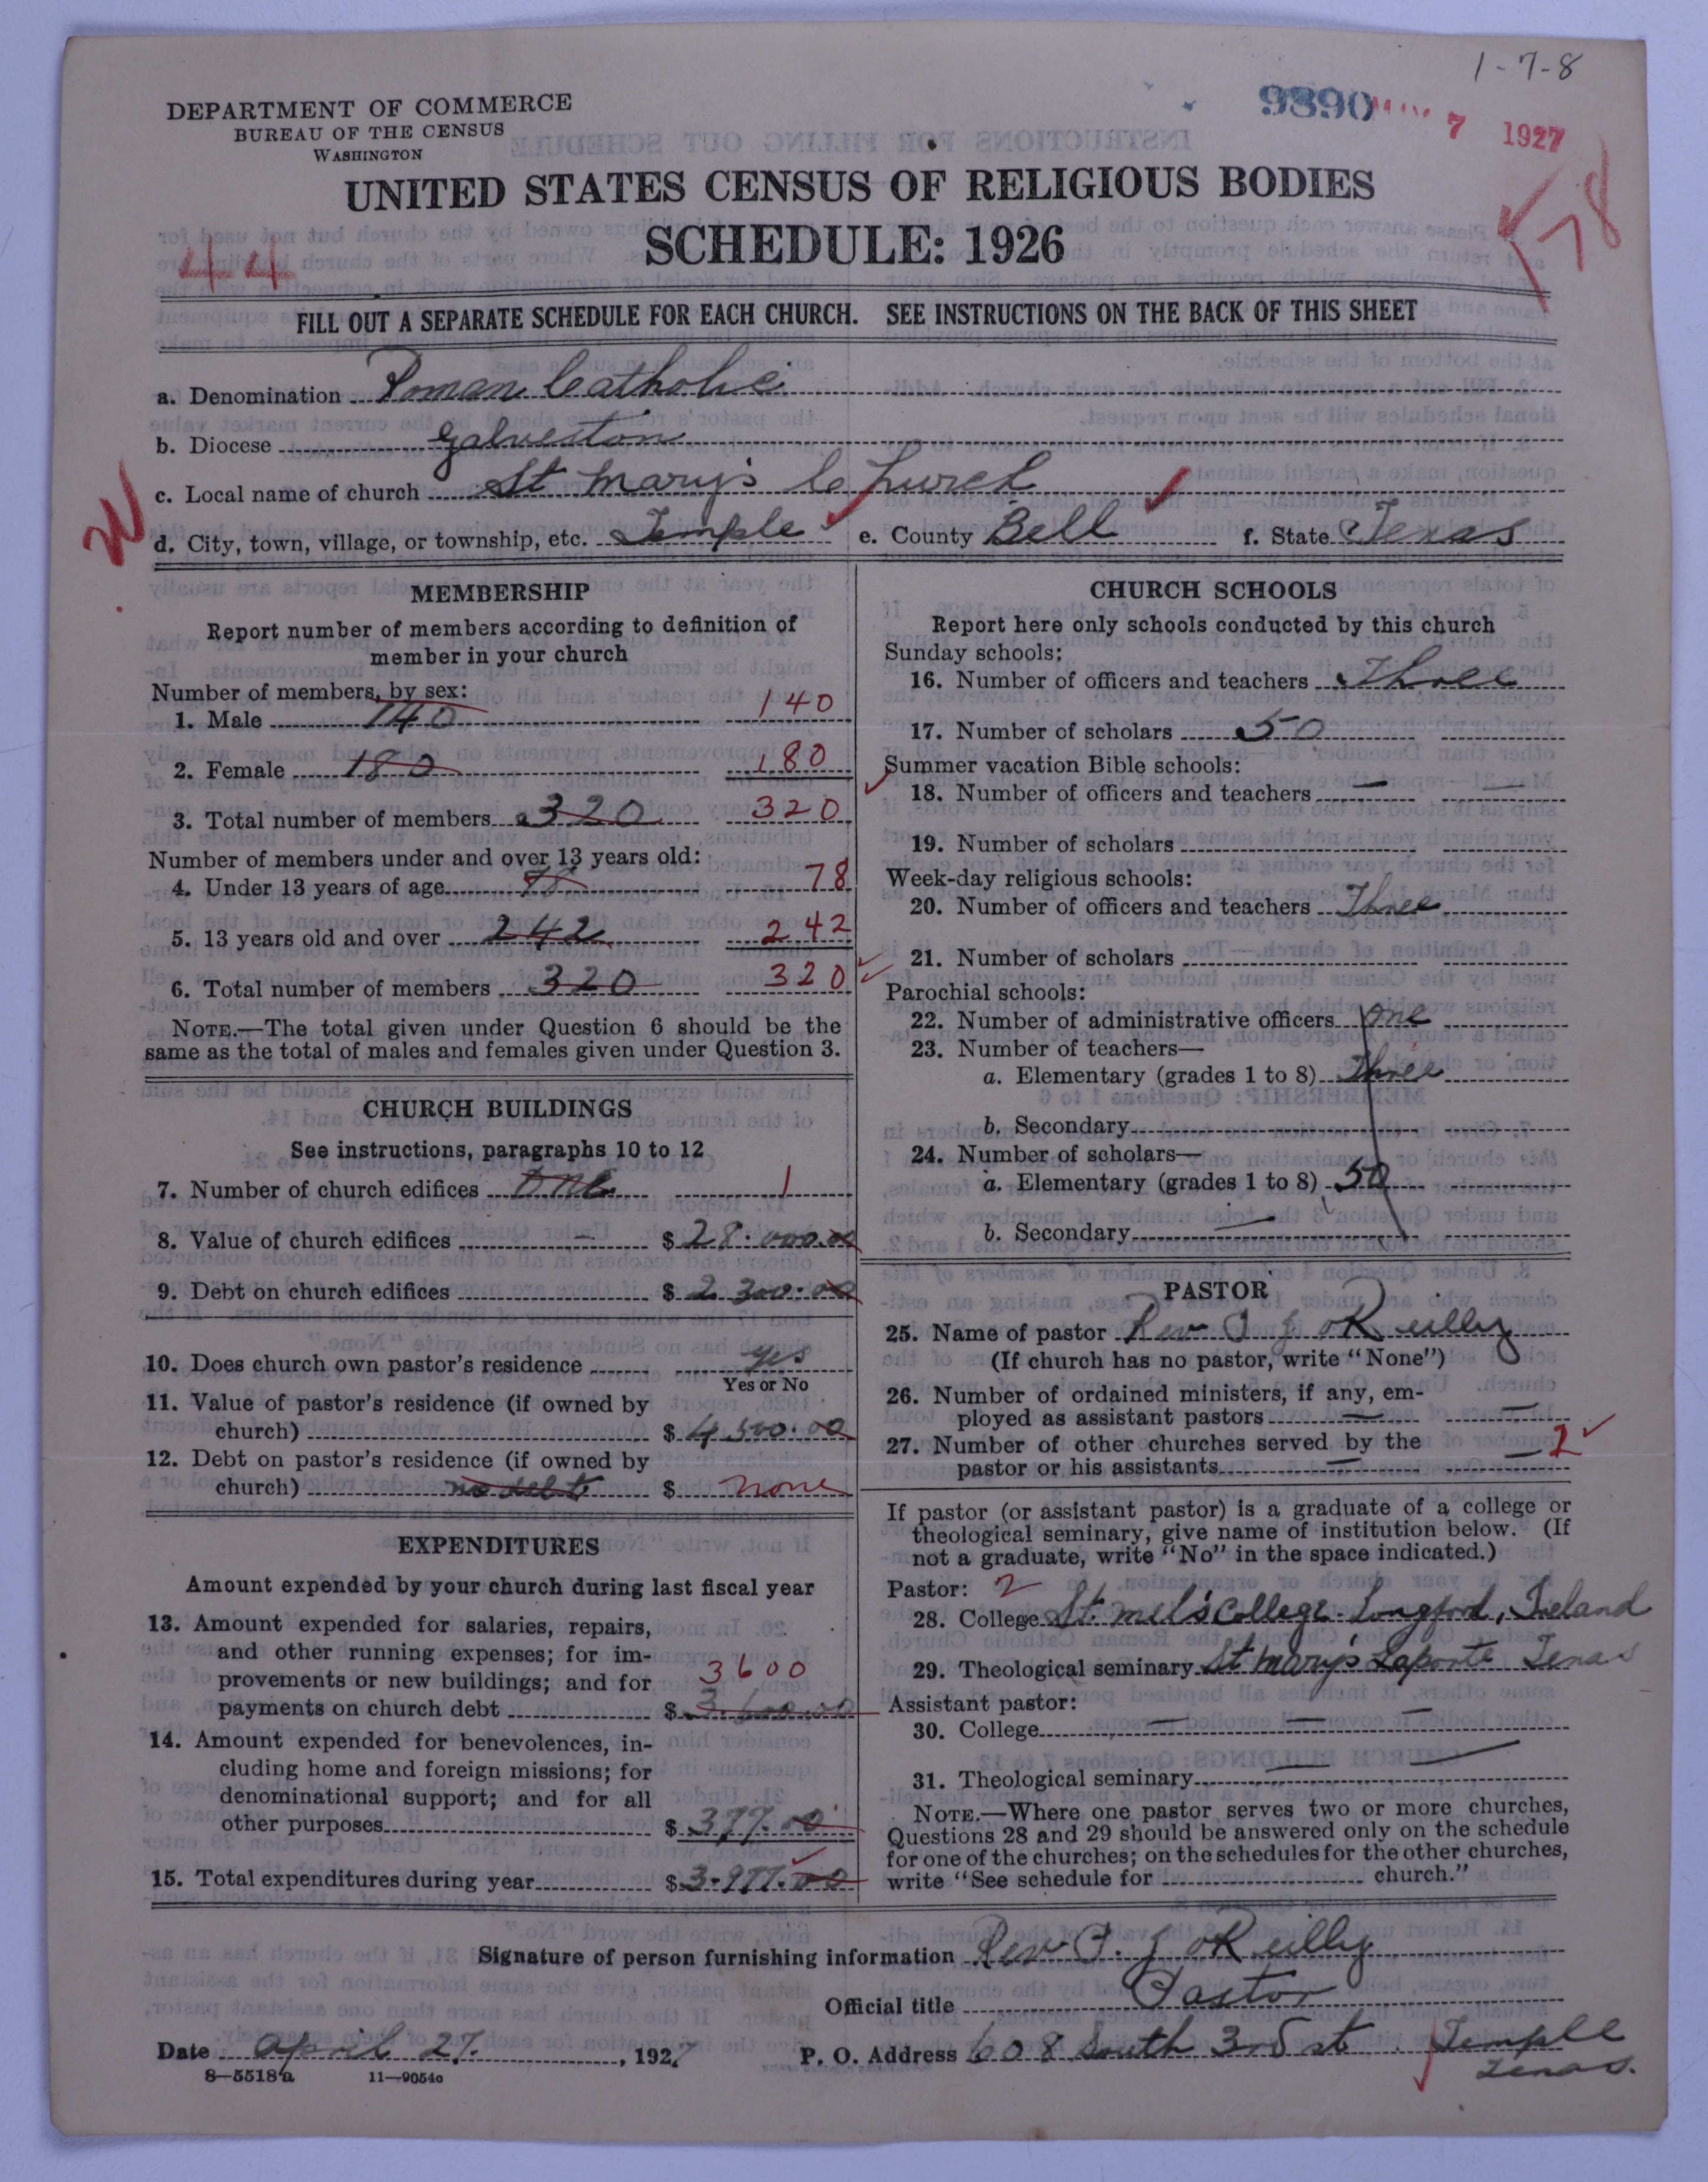 1-7-8
DEPARTMENT OF COMMERCE
BUREAU OF THE CENSUS
WASHINGTON
9890
7 1927
UNITED STATES CENSUS OF RELIGIOUS BODIES
SCHEDULE: 1926
44
78
FILL OUT A SEPARATE SCHEDULE FOR EACH CHURCH. SEE INSTRUCTIONS ON THE BACK OF THIS SHEET
a. Denomination Roman Catholic
b. Diocese Galveston
c. Local name of church St Mary's Church
d. City, town, village, or township, etc. Temple e. County Bell f. State Texas
MEMBERSHIP
Report number of members according to definition of
member in your church
Number of members, by sex:
1. Male 140 140
2. Female 180 180
3. Total number of members 320 320
Number of members under and over 13 years old:
4. Under 13 years of age 78 78
5. 13 years old and over 242 242
6. Total number of members 320 320
NOTE.—The total given under Question 6 should be the
same as the total of males and females given under Question 3.
CHURCH BUILDINGS
See instructions, paragraphs 10 to 12
7. Number of church edifices One 1
8. Value of church edifices $ 28.000.00
9. Debt on church edifices $ 2 300.00
10. Does church own pastor's residence yes
Yes or No
11. Value of pastor's residence (if owned by
church) $ 4 500.00
12. Debt on pastor's residence (if owned by
church) no debt $ none
EXPENDITURES
Amount expended by your church during last fiscal year
13. Amount expended for salaries, repairs,
and other running expenses; for im-
provements or new buildings; and for 3600
payments on church debt $ 3.600.00
14. Amount expended for benevolences, in-
cluding home and foreign missions; for
denominational support; and for all
other purposes $ 377.00
15. Total expenditures during year $ 3.977.00
CHURCH SCHOOLS
Report here only schools conducted by this church
Sunday schools:
16. Number of officers and teachers Three
17. Number of scholars 50
Summer vacation Bible schools:
18. Number of officers and teachers — —
19. Number of scholars
Week-day religious schools:
20. Number of officers and teachers Three
21. Number of scholars
Parochial schools:
22. Number of administrative officers One
23. Number of teachers—
a. Elementary (grades 1 to 8) Three
b. Secondary
24. Number of scholars—
a. Elementary (grades 1 to 8) 50
b. Secondary —
PASTOR
25. Name of pastor Rev P J O'Reilly
(If church has no pastor, write "None")
26. Number of ordained ministers, if any, em-
ployed as assistant pastors — —
27. Number of other churches served by the
pastor or his assistants — — 2
If pastor (or assistant pastor) is a graduate of a college or
theological seminary, give name of institution below. (If
not a graduate, write "No" in the space indicated.)
Pastor: 2
28. College St. Mel's College. Longford, Ireland
29. Theological seminary St Mary's Laporte Texas
Assistant pastor:
30. College — — —
31. Theological seminary — —
NOTE.—Where one pastor serves two or more churches,
Questions 28 and 29 should be answered only on the schedule
for one of the churches; on the schedules for the other churches,
write "See schedule for church."
Signature of person furnishing information Rev P. J O'Reilly
Official title Pastor
Date April 27. , 1927 P. O. Address 608 South 3rd st Temple
Texas.
8—5518a 11—9054c